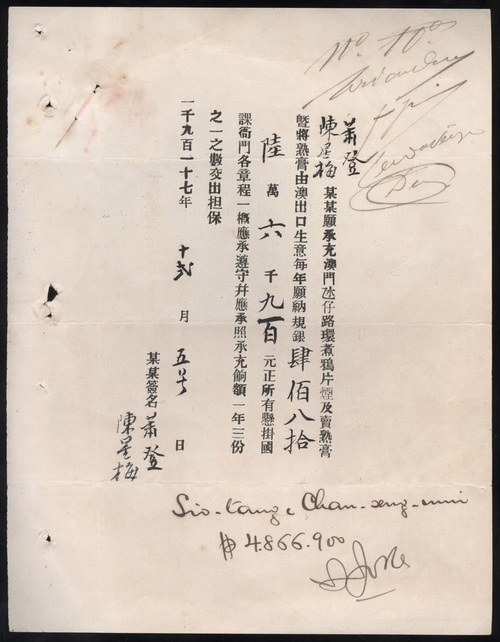 蕭登
陳星梅
某某願承充澳門氹仔路環煮鴉片煙及賣熟膏
曁將熟膏由澳出口生意每年願納規銀肆佰八拾
陸萬六千九百元正所有懸掛國
課衙門各章程一槪應承遵守幷應承照承充餉額一年三份
之一之數交出担保
一千九百一十七年十弍月五号日
某某簽名蕭登
陳星梅
Sio-tang e Chan-seng-mui
$ 4.866.900